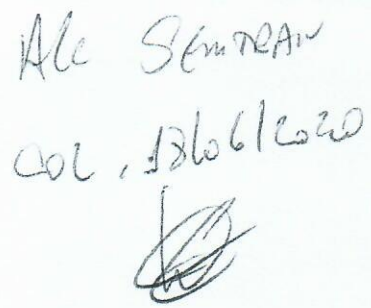 Ale SEMTRAN
COL, 18/06/2020